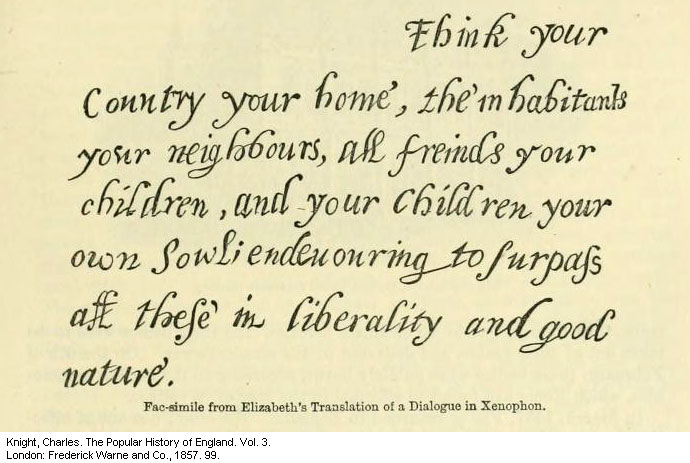 Think your
Country your home, the inhabitants
your neighbours, all freinds your
children, and your Children your
own Sowl; endeuouring to surpass
all these in liberality and good
nature.
Fac-simile from Elizabeth's Translation of a Dialogue in Xenophon.
Knight, Charles. The Popular History of England. Vol. 3.
London: Frederick Warne and Co., 1857. 99.